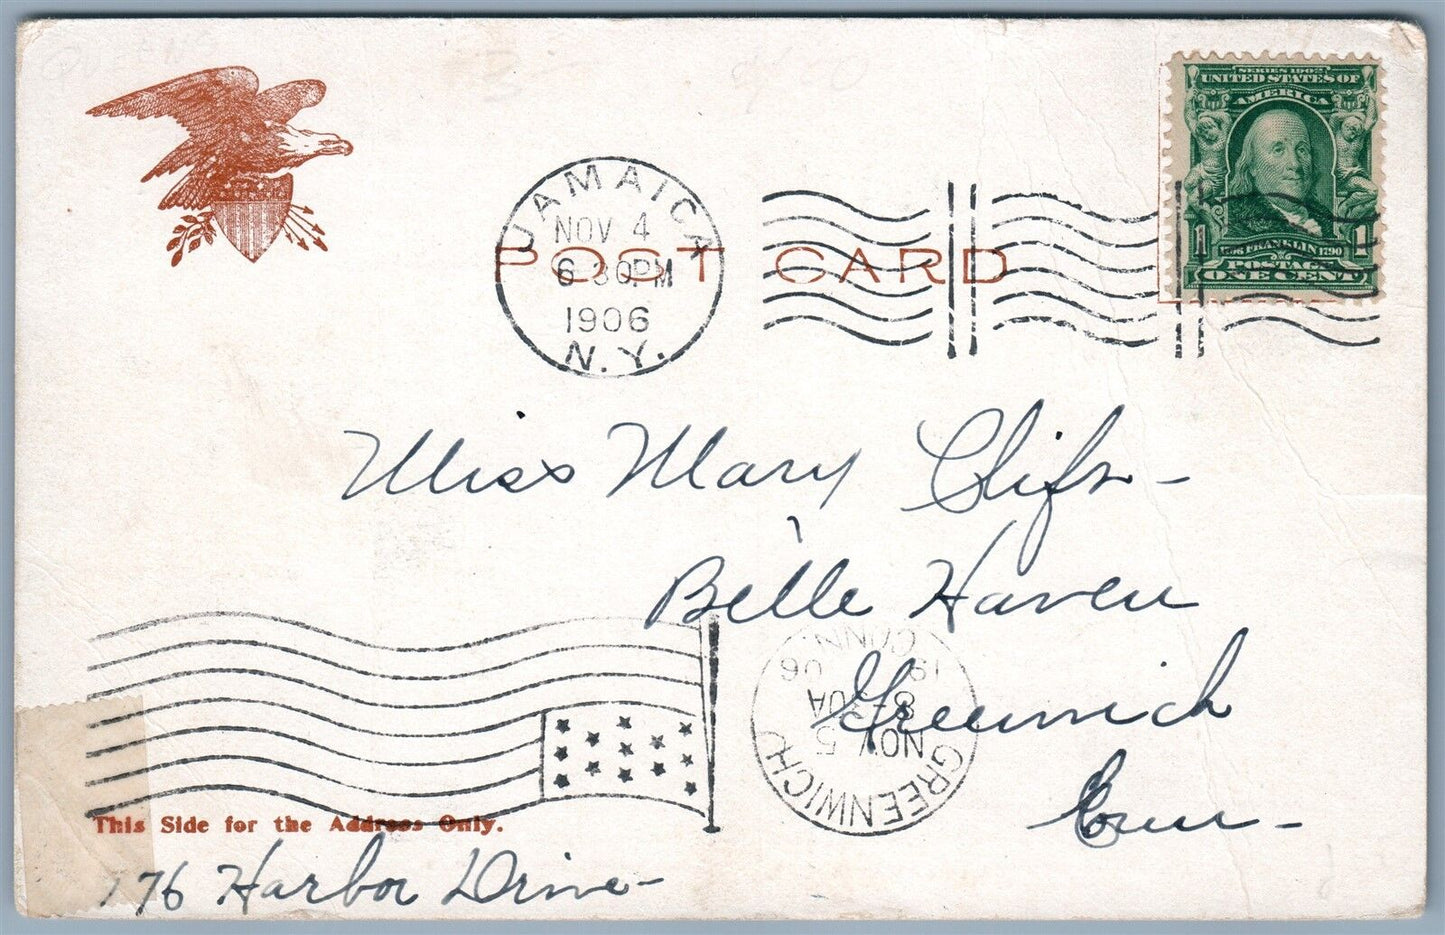 QUEENS
SERIES 1902
UNITED STATES OF
AMERICA
1 FRANKLIN 1790 1
POSTAGE
ONE CENT
JAMAICA
NOV 4
6 30PM
1906
N.Y.
POST CARD
Miss Mary
Belle Haven
Greenwich
Conn -
GREENWICH
NOV 5
8-30A
1906
CONN.
This Side for the Address Only.
176 Harbor Drive -